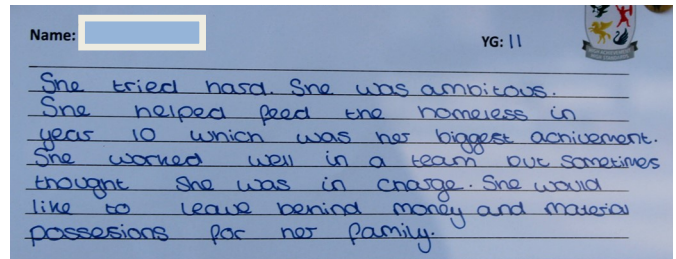 Name:
YG: 11
She tried hard. She was ambitous.
She helped feed the homeless in
year 10 which was her biggest achivement.
She worked well in a team but sometimes
thought she was in charge. She would
like to leave behind money and material
possesions for her family.